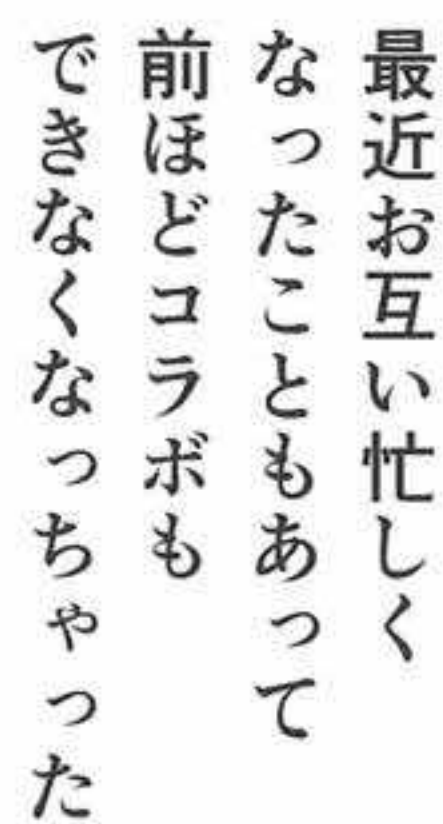 最近お互い忙しく
なったこともあって
前ほどコラボも
できなくなっちゃった